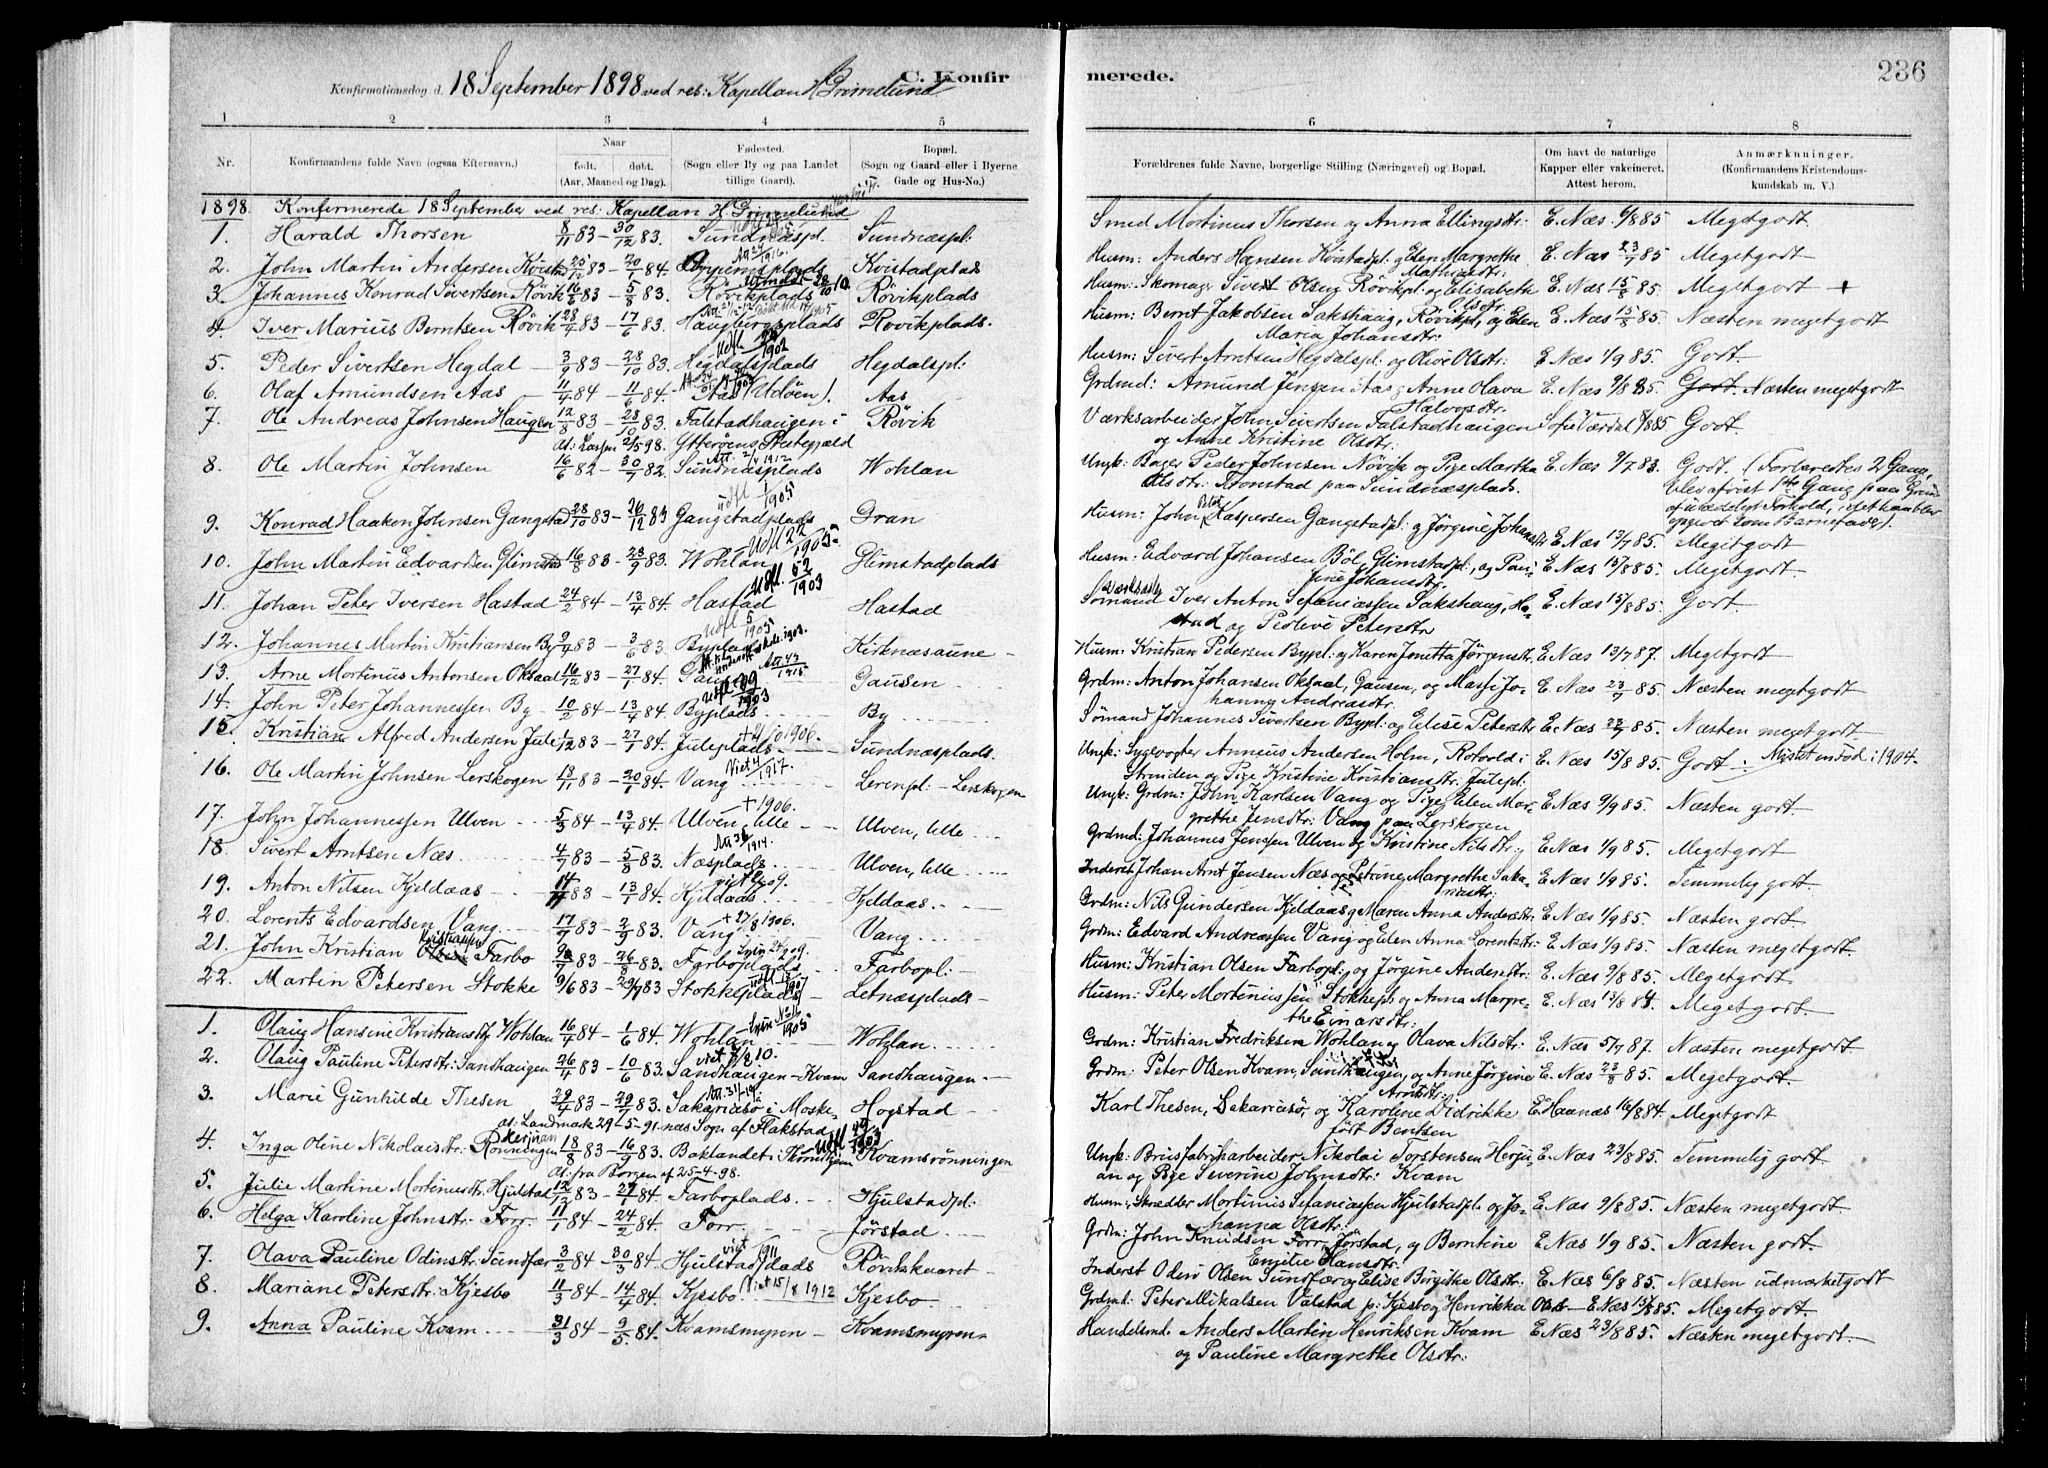 C. Konfirmerede.
236
Konfirmationsdag d. 18 September 1898 ved res: Kapellan H Grimelund
1 2 3 4 5 6 7 8
Nr.
Konfirmandens fulde Navn (ogsaa Efternavn.)
Naar
født. døbt.
(Aar, Maaned og Dag).
Fødested.
(Sogn eller By og paa Landet
tillige Gaard).
Bopæl.
(Sogn og Gaard eller i Byerne
Gade og Hus-No.)
Forældrenes fulde Navne, borgerlige Stilling (Næringsvei) og Bopæl.
Om havt de naturlige
Kapper eller vakcineret.
Attest herom.
Anmærkninger.
(Konfirmandens Kristendoms-
kundskab m. V.)
1898. Konfirmerede 18 September ved res: Kapellan H Grimelund
1. Harald Thorsen 8/11 83 – 30/12 83. Sundnæspl. Sundnæspl: Smed Mortinus Thorsen og Anna Ellingsdtr: E. Næs 6/8 85 Megetgodt.
2. John Martin Andersen Kvistad 25/12 83 – 20/1 84. Kvistadplads Husm: Anders Hansen Kvistadpl. og Elen Margrethe E. Næs 23/7 85 Megetgodt.
Mathiasdtr:
3. Johannes Konrad Sivertsen Rövik 16/6 83 – 5/8 83. Rövikplads Rövikplads Husm: Skomager Sivert Olsen Rövikpl: og Elisabeth E. Næs 15/8 85. Megetgodt +
Olsdtr.
4. Iver Marius Berntsen Rövik 28/4 83 – 17/6 83. Haugbergsplads Rövikplads. Husm: Bernt Jakobsen Sakshaug, Rövikpl, og Elen E. Næs 15/8 85. Næsten megetgodt
Maria Johansdtr:
Udfl 1902
5. Peder Sivertsen Hegdal – 3/9 83 – 28/10 83. Hegdalsplads Hegdalspl: Husm: Sivert Arntsen Hegdalspl: og Olise Olsdtr: E Næs 1/9 85. Godt.
6. Olaf Amundsen Aas 11/4 84 – 11/6 84. Aas (Udöen). Aas Grdmd: Amund Jensen Aas og Anne Olava E. Næs 9/8 85. Godt. Næsten megetgodt
Halvorsdtr:
7. Ole Andreas Johnsen Haugen 12/8 83 – 28/10 83. Falstadhaugen i Rövik Værksarbeider John Sivertsen Falstadhaugen 8/8 85 Godt.
2/5 98. Ytteröens Prestegjæld og Anne Kristine Olsdtr:
Att. 2/4 1912
8. Ole Martin Johnsen 16/6 82 – 30/7 82. Sundnæsplads Wohlan Ungk: Bager Peder Johnsen Növik og Pige Martha E. Næs 9/7 83. Godt. (Forberedtes 2 Gang,
Olsdtr: Tronstad paa Sundnæsplads. blev afvist 1ste Gang paa Grund
af usædeligt Forhold, idet han blev
opgivet som Barnefader).
Udfl 1/1905
9. Konrad Haaken Johnsen Gangstad 28/10 83 – 26/12 83 Gangstadplads Gran Husm: John Kaspersen Gangstadpl: og Jörgine Johansdtr E. Næs 13/7 85. Megetgodt
Udfl 22/1905
10. John Martin Edvardsen Glimstad 16/8 83 – 23/9 83. Wohlan Glimstadplads Husm: Edvard Johansen Böl, Glimstadpl., og Pau- E. Næs 15/8 85. Megetgodt.
line Johansdtr.
Udfl. 52/1903
11. Johan Peter Iversen Hastad 24/2 84 – 13/4 84. Hastad Hastad Sömand Iver Anton Sefaniassen Sakshaug, Ha- E. Næs 15/8 85. Godt
stad og Pedlive Petersdtr
Udfl 5/1905
12. Johannes Martin Kristiansen By 9/4 83 – 3/6 83. Byplads Kirknæsaune – Husm: Kristian Pedersen Bypl: og Karen Jonetta Jörgensdtr, E. Næs 13/7 87. Megetgodt
13. Arne Mortinus Antonsen Oksaal 16/12 83 – 27/1 84. Gausen Gausen Grdm: Anton Johansen Oksaal, Gausen, og Massi Jo- E. Næs 23/7 85. Næsten megetgodt
hanna Andreasdtr.
14. John Peter Johannessen By – 10/2 84 – 13/4 84. Byplads By Sömand Johannes Sivertsen Bypl: og Elise Petersdtr E. Næs 23/7 85. Næsten megetgodt
15. Kristian Alfred Andersen Jule 1/12 83 – 27/1 84. Juleplads Sundnæsplads. Ungk: Sygevogter Anneus Andersen Holm, Rotvold i E. Næs 15/8 85. Godt. Mistet en Fod i 1904.
Strinden og Pige Kristine Kristiansdtr: Julepl:
Viet 4/1917
16. Ole Martin Johnsen Lerskogen 18/11 83 – 20/1 84. Vang Lerenpl: – Lerskogen Ungk: Grdm: John Karlsen Vang og Pige Elen Mar- E. Næs 9/9 85. Næsten godt.
grethe Jensdtr: Vang paa Lerskogen
+ 1906.
17. John Johannessen Ulven 5/3 84 – 13/4 84. Ulven, lille Ulven, lille Grdmd: Johannes Jenssen Ulven og Kristine Nilsdtr: E. Næs 1/9 85. Megetgodt
Att 36 1914.
18. Sivert Arntsen Næs 4/7 83 – 5/8 83. Næsplads Ulven, lille Inderst Johan Arnt Jensen Næs og Petrine Margrethe Saka- E. Næs 1/9 85. Temmelig godt.
riasdtr:
viet 1909.
19. Anton Nilsen Kjeldaas 14/11 83 – 13/1 84. Kjeldaas Kjeldaas. Grdm: Nils Gundersen Kjeldaas og Maren Anna Andersdtr E. Næs 1/9 85. Næsten godt.
+ 27/8 1906.
20. Lorents Edvardsen Vang 17/7 83 – 2/9 83. Vang Vang. Grdm: Edvard Andreassen Vang og Elen Anna Lorentsdtr: E. Næs 1/9 85. Næsten megetgodt.
21. John Kristian Kristiansen Farbo 9/7 83 – 26/8 83. Farboplads Farbopl: Husm: Kristian Olsen Farbopl: og Jörgine Andersdtr: E. Næs 9/8 85. Megetgodt.
22. Martin Petersen Stokke 9/6 83 – 29/7 83 Stokkeplads Letnæsplads – Husm: Peter Mortinussen Stokkepl og Anna Margre- E. Næs 12/8 84. Megetgodt.
the Einarsdtr:
1. Olaug Hansine Kristiansdtr Wohlan 16/4 84 – 1/6 84. Wohlan Wohlan. Grdm: Kristian Fredriksen Wohlan og Olava Nilsdtr: E. Næs 5/7 87. Næsten megetgodt.
viet 7/8 10.
2. Olaug Pauline Petersdtr: Sandhaugen 26/4 83 – 10/6 83. Sandhaugen – Kvam Sandhaugen – Grdm: Peter Olsen Kvam, Sundhaugen, og Anne Jörgine E. Næs 23/8 85. Megetgodt.
Arntsdtr.
3. Marie Gunhilde Thesen 29/4 83 – 29/7 83. Sakariasö i Moske- Hogstad Karl Thesen, Sakariasö, og Karoline Didrikke E. Haanæs 16/8 84. Megetgodt
at: Landmark 29-5-91. næs Sogn af Flakstad född Bentsen
Udfl 49/1903
4. Inga Oline Nikolaisdtr. Rönningen 18/8 83 – 16/9 83. Baklandet i Trondhjem Kvamsrönningen Ungk: Brusfabrikarbeider Nikolai Torstensen Herju- E. Næs 23/8 85. Temmelig godt.
at: fra Borgen af 25-4-98. an og Pige Severine Johnsdtr: Kvam
5. Julie Martine Mortinusdtr. Hjulstad 12/12 83 – 27/1 84. Farboplads Hjulstadpl: Husm: Skrædder Mortinus Sefaniassen Hjulstadpl. og Jo- E. Næs 9/8 85. Næsten megetgodt.
hanna Olsdtr:
6. Helga Karoline Johnsdtr: Forr. 11/1 84 – 24/2 84. Forr. Jörstad Grdm: John Knudsen Forr, Jörstad, og Berntine E. Næs 1/9 85. Næsten godt.
Emilie Hansdtr:
viet 1911
7. Olava Pauline Odinsdtr: Sundfær 3/2 84 – 30/3 84 Hjulstadplads Rövikskaaret – Inderst Odin Olsen Sundfær og Elise Birgitte Olsdtr: E. Næs 6/8 85 Næsten udmærketgodt
8. Mariane Petersdtr: Kjesbo 11/3 84 – 14/4 84. Kjesbo. Viet 15/8 1912 Kjesbo. Grdmd: Peter Mikalsen Valstad p: Kjesbo og Henrikka Olsdtr – E. Næs 15/8 85. Megetgodt.
9. Anna Pauline Kvam 31/3 84 – 9/5 84. Kvamsmyren – Kvamsmyren – Handelsmd. Anders Martin Henriksen Kvam E. Næs 23/8 85. Næsten megetgodt.
og Pauline Margrethe Olsdtr: